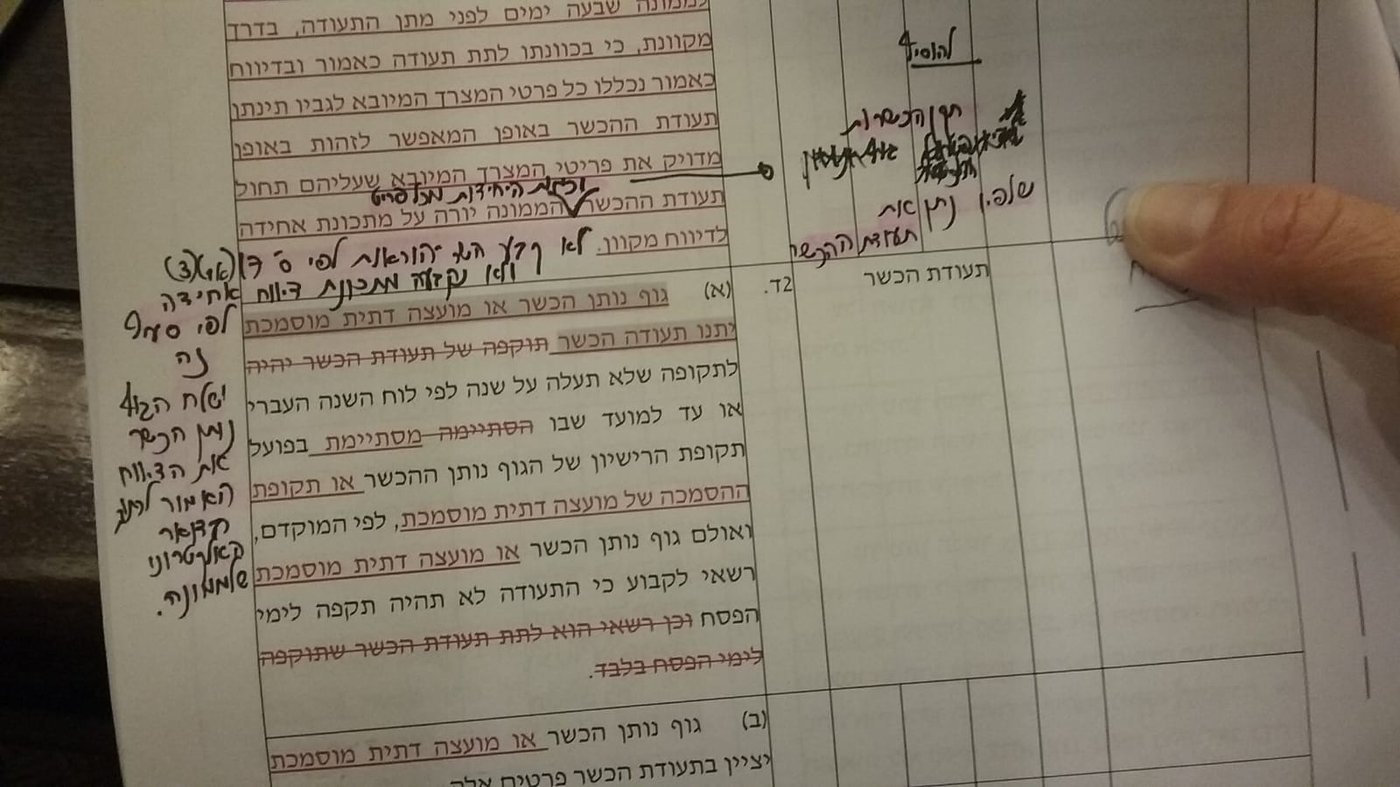 לממונה שבעה ימים לפני מתן התעודה, בדרך
מקוונת, כי בכוונתו לתת תעודה כאמור ובדיווח
כאמור נכללו כל פרטי המצרך המיובא לגביו תינתן
תעודת ההכשר באופן המאפשר לזהות באופן
מדויק את פריטי המצרך המיובא שעליהם תחול
וכמות היחידות מכל פריט
תעודת ההכשר הממונה יורה על מתכונת אחידה
לדיווח מקוון.
להוסיף
תקן הכשרות
שלפיו נתן את
תעודת ההכשר
לא קבע השר הוראות לפי ס'
ולא נקבעה מתכונת דיווח אחידה
לפי סעיף
זה
ישלח הגוף
נותן הכשר
את הדיווח
האמור
בדואר
האלקטרוני
של הממונה.
תעודת הכשר
2ד.
(א) גוף נותן הכשר או מועצה דתית מוסמכת
יתנו תעודה הכשר תוקפה של תעודת הכשר יהיה
לתקופה שלא תעלה על שנה לפי לוח השנה העברי
או עד למועד שבו הסתיימה מסתיימת בפועל
תקופת הרישיון של הגוף נותן ההכשר או תקופת
ההסמכה של מועצה דתית מוסמכת, לפי המוקדם,
ואולם גוף נותן הכשר או מועצה דתית מוסמכת
רשאי לקבוע כי התעודה לא תהיה תקפה לימי
הפסח וכן רשאי הוא לתת תעודת הכשר שתוקפה
לימי הפסח בלבד.
(ב) גוף נותן הכשר או מועצה דתית מוסמכת
יציין בתעודת הכשר פרטים אלה